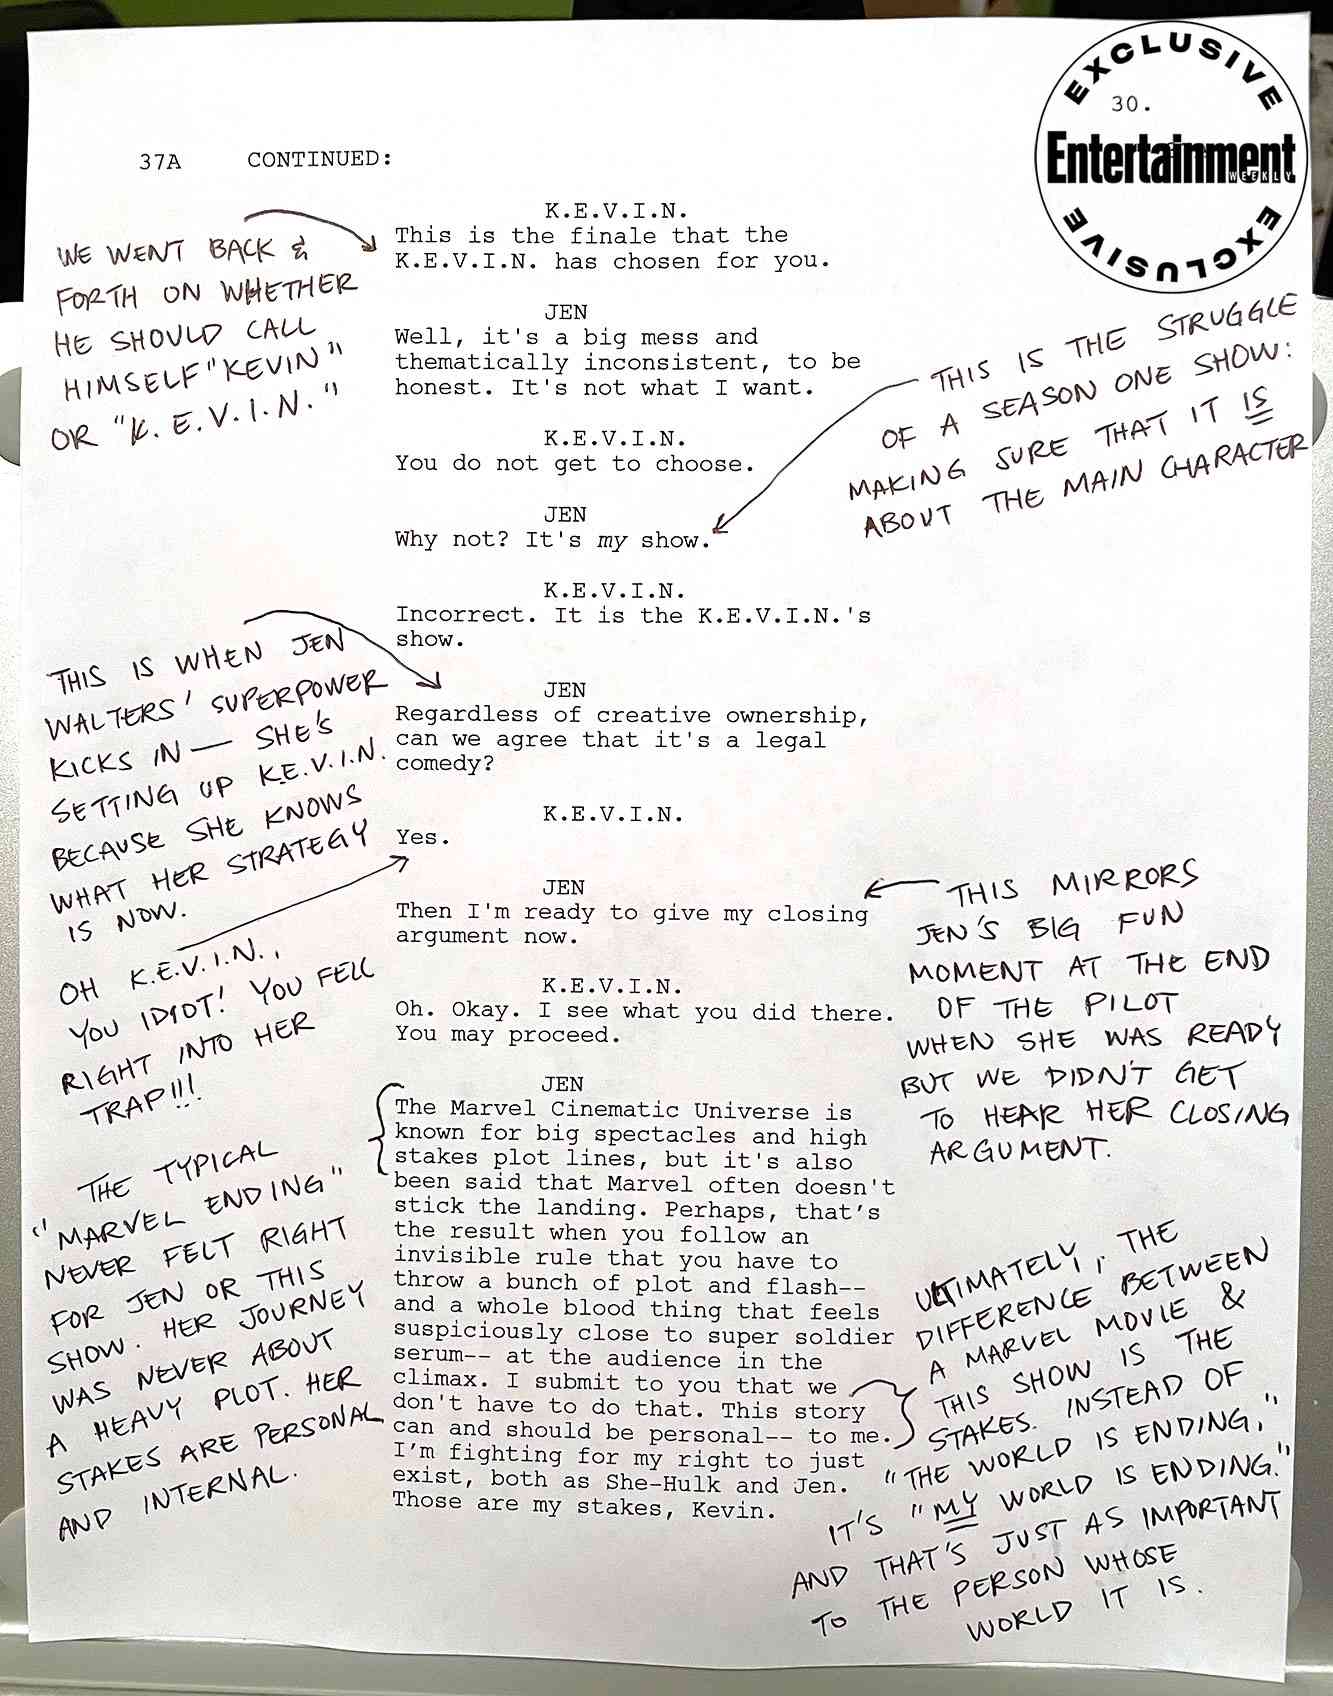 EXCLUSIVE
30.
Entertainment
WEEKLY
EXCLUSIVE
37A CONTINUED:
K.E.V.I.N.
This is the finale that the
K.E.V.I.N. has chosen for you.
WE WENT BACK &
FORTH ON WHETHER
HE SHOULD CALL
HIMSELF "KEVIN"
OR "K.E.V.I.N."
JEN
Well, it's a big mess and
thematically inconsistent, to be
honest. It's not what I want.
THIS IS THE STRUGGLE
OF A SEASON ONE SHOW:
MAKING SURE THAT IT IS
ABOUT THE MAIN CHARACTER
K.E.V.I.N.
You do not get to choose.
JEN
Why not? It's my show.
K.E.V.I.N.
Incorrect. It is the K.E.V.I.N.'s
show.
THIS IS WHEN JEN
WALTERS' SUPERPOWER
KICKS IN — SHE'S
SETTING UP K.E.V.I.N.
BECAUSE SHE KNOWS
WHAT HER STRATEGY
IS NOW.
JEN
Regardless of creative ownership,
can we agree that it's a legal
comedy?
K.E.V.I.N.
Yes.
OH K.E.V.I.N.,
YOU IDIOT! YOU FELL
RIGHT INTO HER
TRAP!!!
JEN
Then I'm ready to give my closing
argument now.
THIS MIRRORS
JEN'S BIG FUN
MOMENT AT THE END
OF THE PILOT
WHEN SHE WAS READY
BUT WE DIDN'T GET
TO HEAR HER CLOSING
ARGUMENT.
K.E.V.I.N.
Oh. Okay. I see what you did there.
You may proceed.
JEN
The Marvel Cinematic Universe is
known for big spectacles and high
stakes plot lines, but it's also
been said that Marvel often doesn't
stick the landing. Perhaps, that's
the result when you follow an
invisible rule that you have to
throw a bunch of plot and flash--
and a whole blood thing that feels
suspiciously close to super soldier
serum-- at the audience in the
climax. I submit to you that we
don't have to do that. This story
can and should be personal-- to me.
I'm fighting for my right to just
exist, both as She-Hulk and Jen.
Those are my stakes, Kevin.
THE TYPICAL
"MARVEL ENDING"
NEVER FELT RIGHT
FOR JEN OR THIS
SHOW. HER JOURNEY
WAS NEVER ABOUT
A HEAVY PLOT. HER
STAKES ARE PERSONAL
AND INTERNAL.
ULTIMATELY, THE
DIFFERENCE BETWEEN
A MARVEL MOVIE &
THIS SHOW IS THE
STAKES. INSTEAD OF
"THE WORLD IS ENDING,"
IT'S "MY WORLD IS ENDING."
AND THAT'S JUST AS IMPORTANT
TO THE PERSON WHOSE
WORLD IT IS.